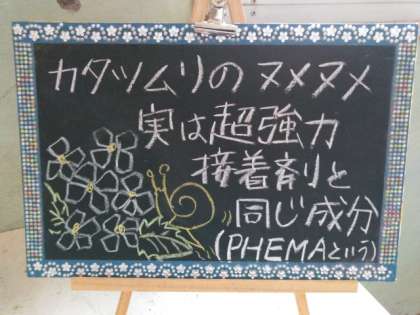 カタツムリのヌメヌメ
実は超強力
接着剤と
同じ成分
(PHEMAという)